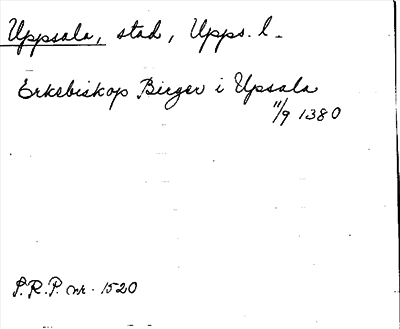 Uppsala, stad, Upps. l.
Erkebiskop Birger i Upsala
11/9 1380
P.R.P. nr. 1520